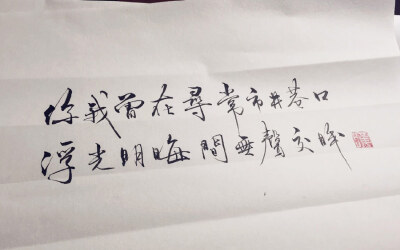 你我曾在尋常市井巷口
浮光明晦間無聲交眸